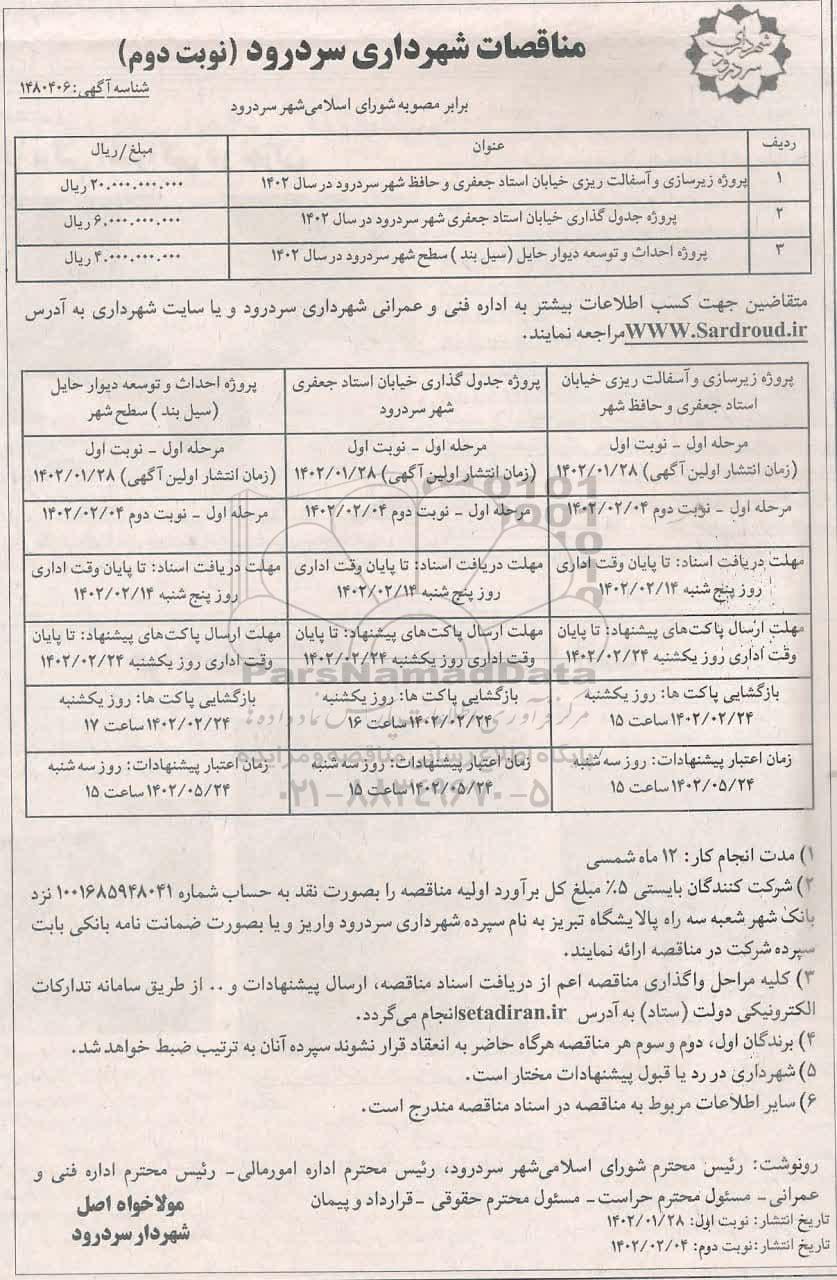 شهرداری سردرود
مناقصات شهرداری سردرود (نوبت دوم)
شناسه آگهی: ۱۴۸۰۴۰۶
برابر مصوبه شورای اسلامی شهر سردرود
ردیف عنوان مبلغ/ریال
۱ پروژه زیرسازی و آسفالت ریزی خیابان استاد جعفری و حافظ شهر سردرود در سال ۱۴۰۲ ۲۰.۰۰۰.۰۰۰.۰۰۰ ریال
۲ پروژه جدول گذاری خیابان استاد جعفری شهر سردرود در سال ۱۴۰۲ ۶.۰۰۰.۰۰۰.۰۰۰ ریال
۳ پروژه احداث و توسعه دیوار حایل (سیل بند ) سطح شهر سردرود در سال ۱۴۰۲ ۴.۰۰۰.۰۰۰.۰۰۰ ریال
متقاضین جهت کسب اطلاعات بیشتر به اداره فنی و عمرانی شهرداری سردرود و یا سایت شهرداری به آدرس
WWW.Sardroud.ir مراجعه نمایند.
پروژه زیرسازی و آسفالت ریزی خیابان پروژه جدول گذاری خیابان استاد جعفری پروژه احداث و توسعه دیوار حایل
استاد جعفری و حافظ شهر شهر سردرود (سیل بند ) سطح شهر
مرحله اول - نوبت اول مرحله اول - نوبت اول مرحله اول - نوبت اول
(زمان انتشار اولین آگهی) ۱۴۰۲/۰۱/۲۸ (زمان انتشار اولین آگهی) ۱۴۰۲/۰۱/۲۸ (زمان انتشار اولین آگهی) ۱۴۰۲/۰۱/۲۸
مرحله اول - نوبت دوم ۱۴۰۲/۰۲/۰۴ مرحله اول - نوبت دوم ۱۴۰۲/۰۲/۰۴ مرحله اول - نوبت دوم ۱۴۰۲/۰۲/۰۴
مهلت دریافت اسناد: تا پایان وقت اداری مهلت دریافت اسناد: تا پایان وقت اداری مهلت دریافت اسناد: تا پایان وقت اداری
روز پنج شنبه ۱۴۰۲/۰۲/۱۴ روز پنج شنبه ۱۴۰۲/۰۲/۱۴ روز پنج شنبه ۱۴۰۲/۰۲/۱۴
مهلت ارسال پاکت‌های پیشنهاد: تا پایان مهلت ارسال پاکت‌های پیشنهاد: تا پایان مهلت ارسال پاکت‌های پیشنهاد: تا پایان
وقت اداری روز یکشنبه ۱۴۰۲/۰۲/۲۴ وقت اداری روز یکشنبه ۱۴۰۲/۰۲/۲۴ وقت اداری روز یکشنبه ۱۴۰۲/۰۲/۲۴
ParsNamadData
بازگشایی پاکت ها: روز یکشنبه بازگشایی پاکت ها: روز یکشنبه بازگشایی پاکت ها: روز یکشنبه
۱۴۰۲/۰۲/۲۴ ساعت ۱۵ ۱۴۰۲/۰۲/۲۴ ساعت ۱۶ ۱۴۰۲/۰۲/۲۴ ساعت ۱۷
پایگاه اطلاع رسانی مناقصه و مزایده
زمان اعتبار پیشنهادات: روز سه شنبه زمان اعتبار پیشنهادات: روز سه شنبه زمان اعتبار پیشنهادات: روز سه شنبه
۱۴۰۲/۰۵/۲۴ ساعت ۱۵ ۱۴۰۲/۰۵/۲۴ ساعت ۱۵ ۱۴۰۲/۰۵/۲۴ ساعت ۱۵
۰۲۱-۸۸۳۴۹۶۷۰-۵
۱) مدت انجام کار: ۱۲ ماه شمسی
۲) شرکت کنندگان بایستی ۵٪ مبلغ کل برآورد اولیه مناقصه را بصورت نقد به حساب شماره ۱۰۰۱۶۸۵۹۴۸۰۴۱ نزد
بانک شهر شعبه سه راه پالایشگاه تبریز به نام سپرده شهرداری سردرود واریز و یا بصورت ضمانت نامه بانکی بابت
سپرده شرکت در مناقصه ارائه نمایند.
۳) کلیه مراحل واگذاری مناقصه اعم از دریافت اسناد مناقصه، ارسال پیشنهادات و .. از طریق سامانه تدارکات
الکترونیکی دولت (ستاد) به آدرس setadiran.ir انجام می‌گردد.
۴) برندگان اول، دوم و سوم هر مناقصه هرگاه حاضر به انعقاد قرار نشوند سپرده آنان به ترتیب ضبط خواهد شد.
۵) شهرداری در رد یا قبول پیشنهادات مختار است.
۶) سایر اطلاعات مربوط به مناقصه در اسناد مناقصه مندرج است.
رونوشت: رئیس محترم شورای اسلامی‌شهر سردرود، رئیس محترم اداره امورمالی- رئیس محترم اداره فنی و
عمرانی- مسئول محترم حراست- مسئول محترم حقوقی -قرارداد و پیمان
تاریخ انتشار: نوبت اول: ۱۴۰۲/۰۱/۲۸
تاریخ انتشار:نوبت دوم: ۱۴۰۲/۰۲/۰۴
مولاخواه اصل
شهردار سردرود